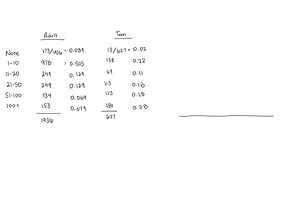 Adult Teen
None 173/1936 = 0.089 13/627 = 0.02
1-10 978 = 0.505 138 0.22
11-20 249 0.129 69 0.11
21-50 249 0.129 113 0.18
51-100 134 0.069 113 0.18
100+ 153 0.079 181 0.28
1936 627